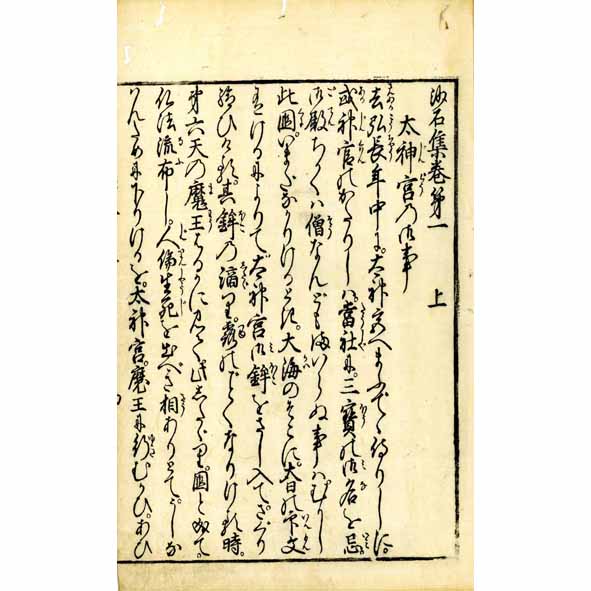 沙石集巻第一 上
太神宮乃御事
去弘長年中に。太神宮へまふでゝ侍りしに。
或神官のかたりしハ。當社に。三寳の御名を忌
御殿ちかくハ僧なんどもまいらぬ事ハ。むかし
此國いまだなかりけるとき。大海のそこに。大日の印文
ありけるによりて。太神宮御鉾をさし入てさぐり
給ひける。其鉾の滴り。露のごとくなりける時。
第六天の魔王はるかに見て。此したゝり。國と成て。
仏法流布し。人倫生死を出べき相ありとて。うしな
はんためにくだりけるを。太神宮。魔王に行むかひ。あひ